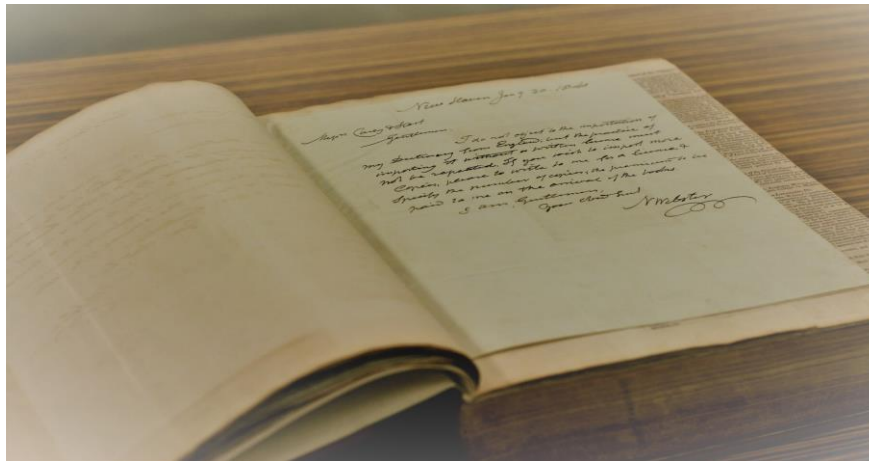 New Haven Jany 20
Messrs Carey & Hart
Gentlemen, I do not object to the importation of
my Dictionary from England, but the practice of
importing it without a written license must
not be repeated. If you wish to import more
Copies, please to write to me for a license, &
specify the number of copies, the premium to be
paid to me on the arrival of the books.
I am, Gentlemen,
Your Obed Servt
N Webster